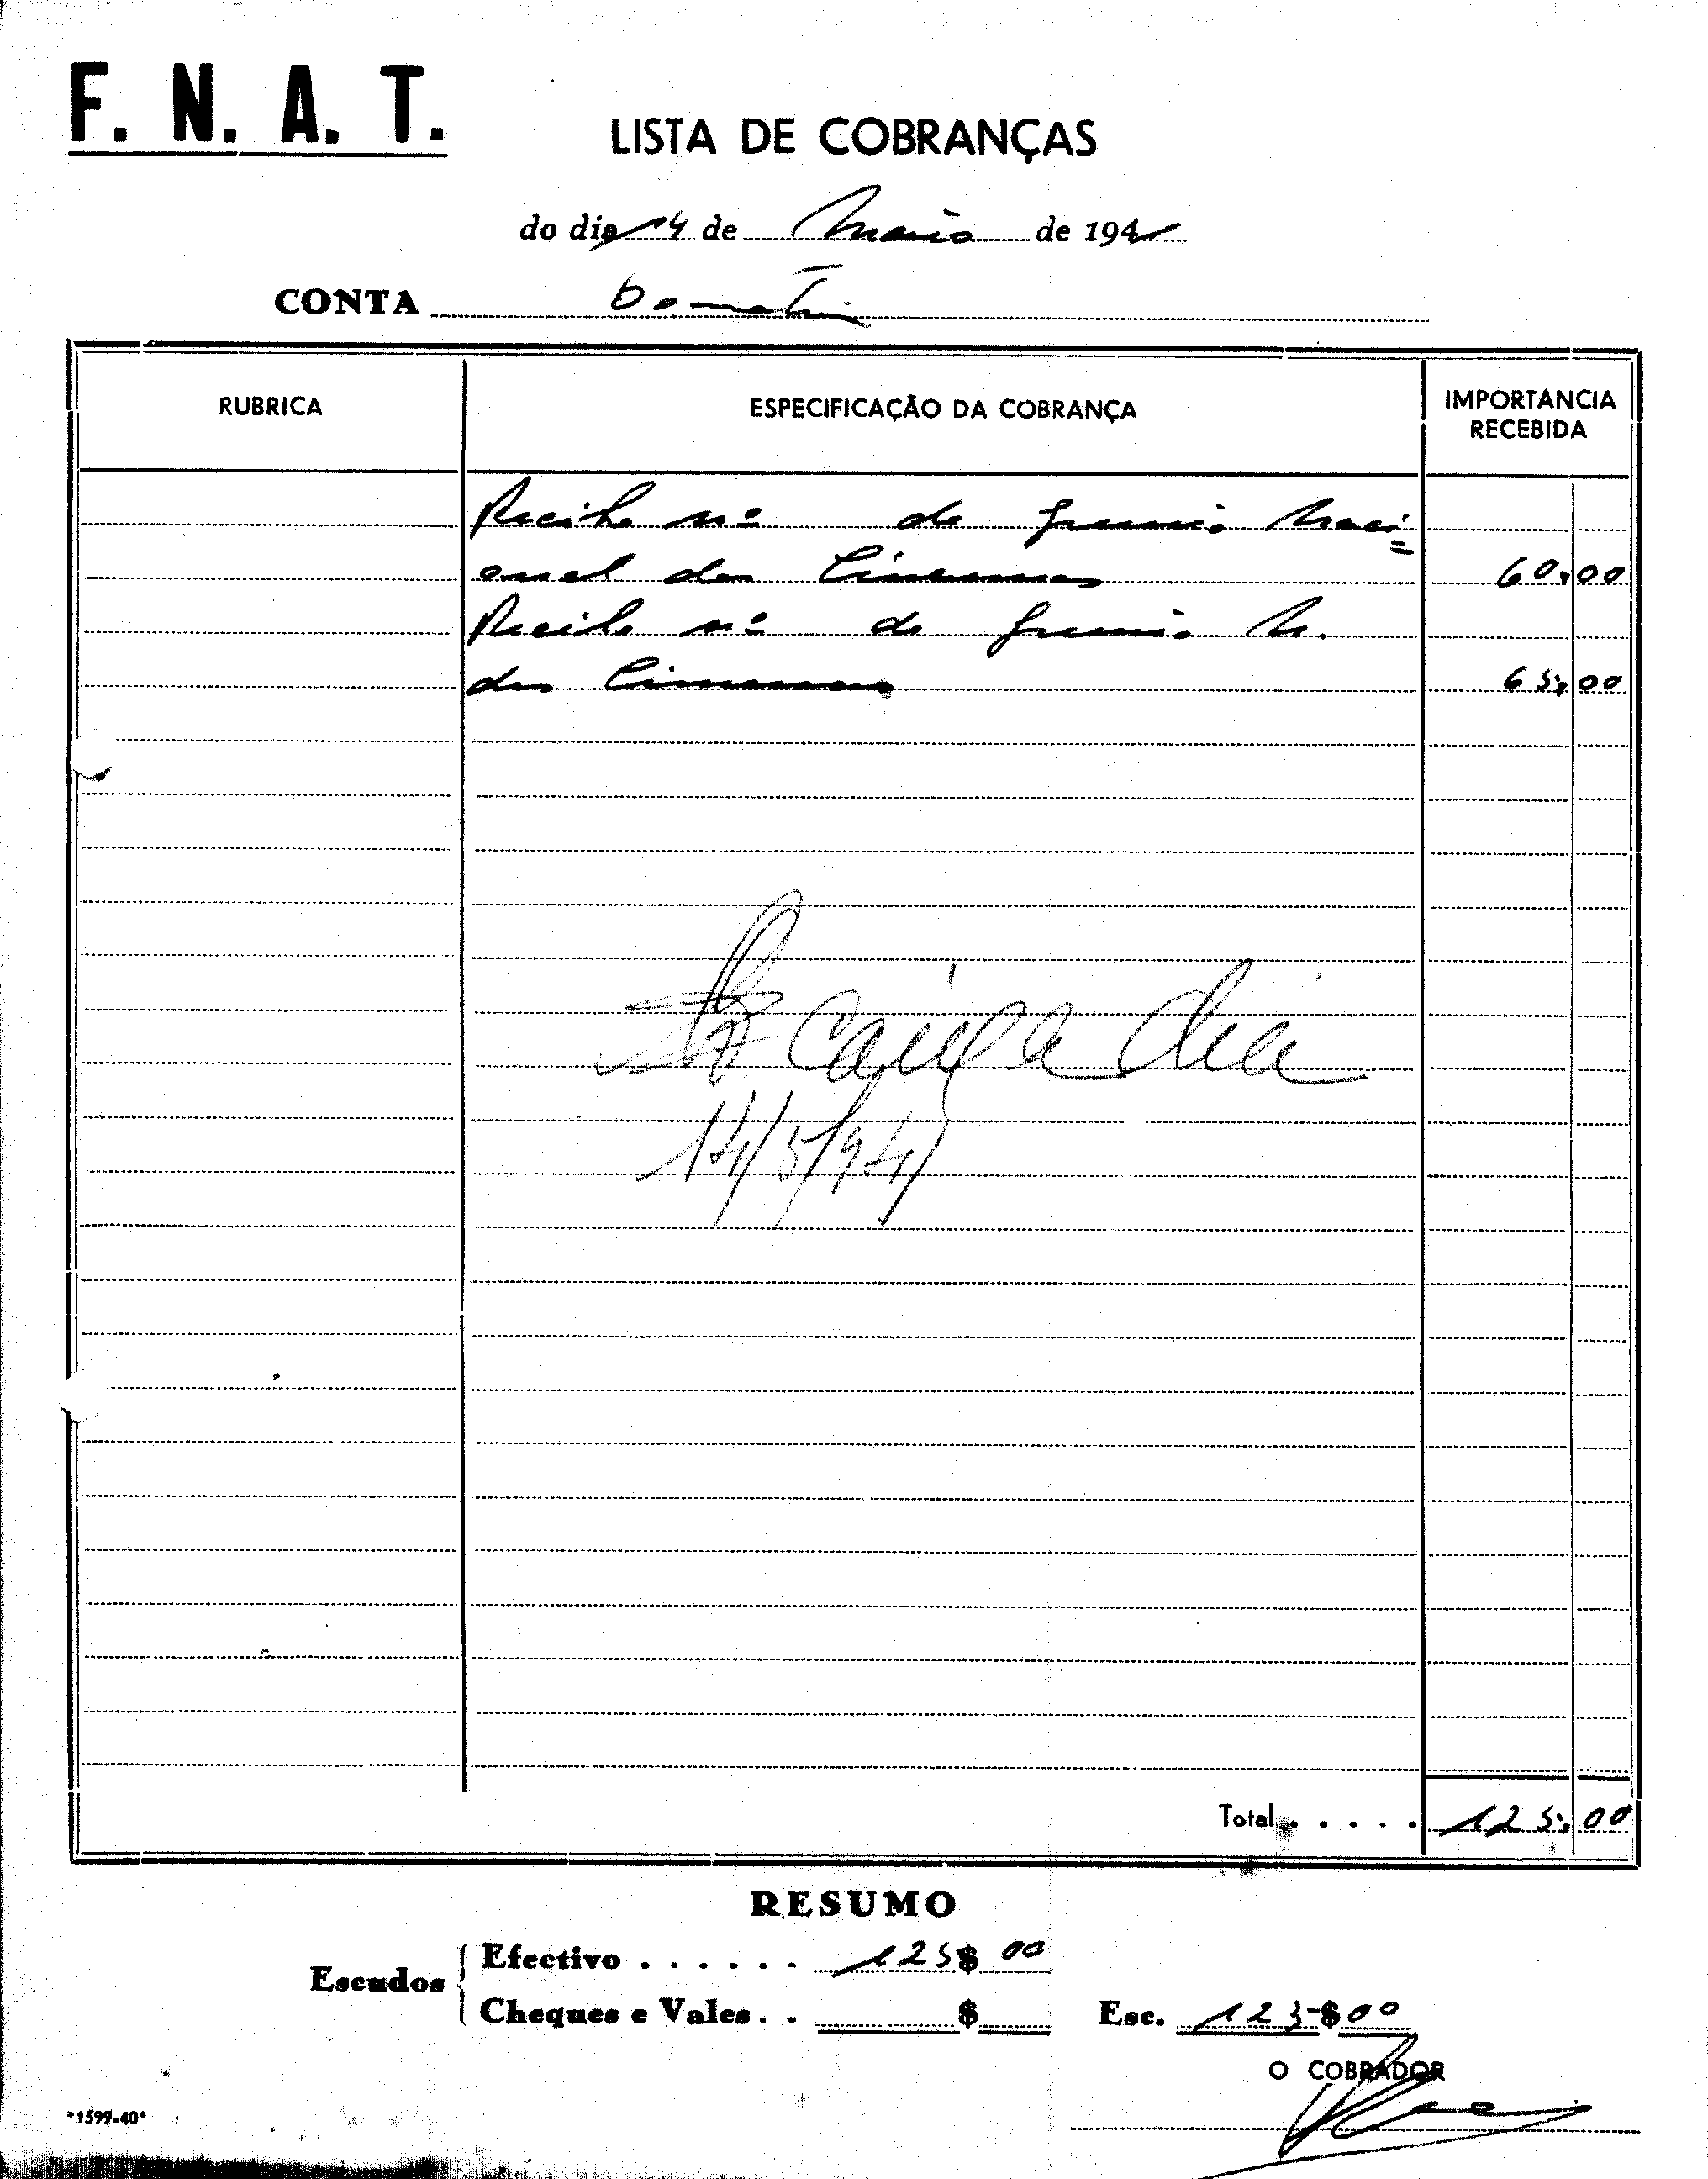 F. N. A. T.
LISTA DE COBRANÇAS
do dia 14 de Maio de 1941
CONTA
RUBRICA
ESPECIFICAÇÃO DA COBRANÇA
IMPORTANCIA
RECEBIDA
Recibo nº do Gremio Naci=
onal dos Cinemas 60,00
Recibo nº do Gremio N.
dos Cinemas 65,00
14/5/941
Total . . . . . 125,00
RESUMO
Escudos
Efectivo . . . . . . 125$00
Cheques e Vales . . $
Esc. 125$00
O COBRADOR
*1599-40*